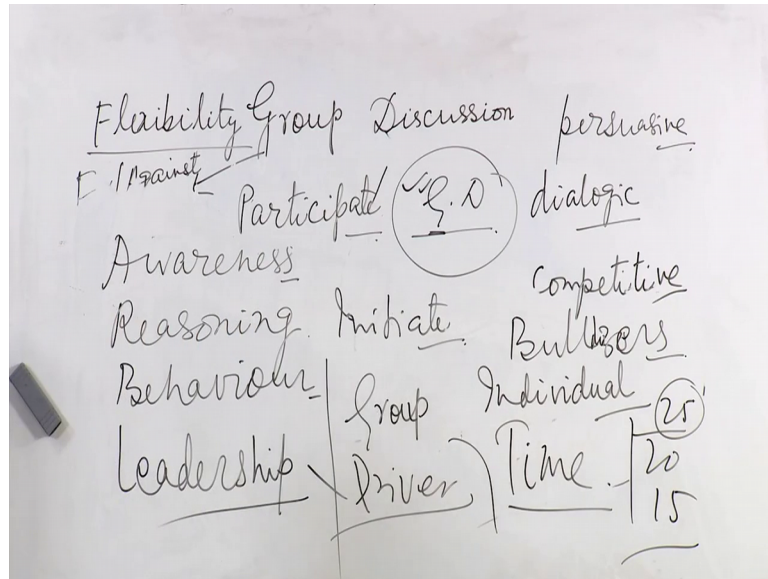 Flexibility Group Discussion persuasive
F / Against
Participate G.D dialogic
Awareness
Competitive
Reasoning Initiate
Bulldozers
Behaviour
Group Individual 25
Leadership Driver Time 20
15